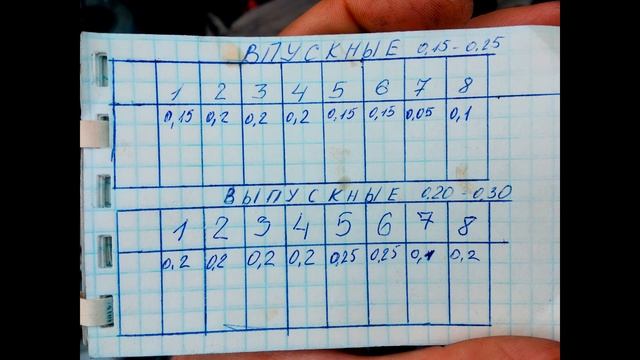 ВПУСКНЫЕ 0,15-0,25
1 2 3 4 5 6 7 8
0,15 0,2 0,2 0,2 0,15 0,15 0,05 0,1
ВЫПУСКНЫЕ 0,20-0,30
1 2 3 4 5 6 7 8
0,2 0,2 0,2 0,2 0,25 0,25 0,1 0,2